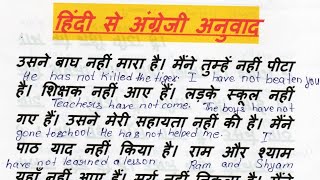 हिंदी से अंग्रेजी अनुवाद
उसने बाघ नहीं मारा है। मैंने तुम्हें नहीं पीटा
He has not killed the tiger. I have not beaten you
है। शिक्षक नहीं आए हैं। लड़के स्कूल नहीं
Teachers have not come. The boys have not
गए हैं। उसने मेरी सहायता नहीं की है। मैंने
gone to school. He has not helped me. I
पाठ याद नहीं किया है। राम और श्याम
have not learned a lesson. Ram and Shyam
यहाँ नहीं आए हैं। सूर्य नहीं निकला है। मैंने